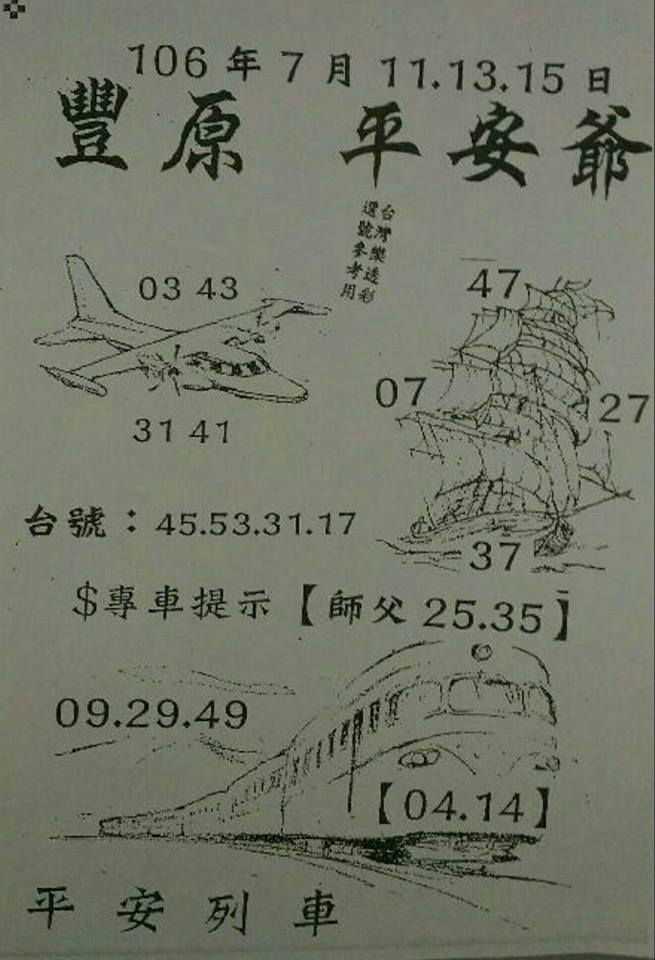 106年7月11.13.15日
豐原 平安爺
台灣樂透彩
選號參考用
03 43
31 41
47
07
27
37
台號：45.53.31.17
$專車提示【師父25.35】
09.29.49
【04.14】
平安列車